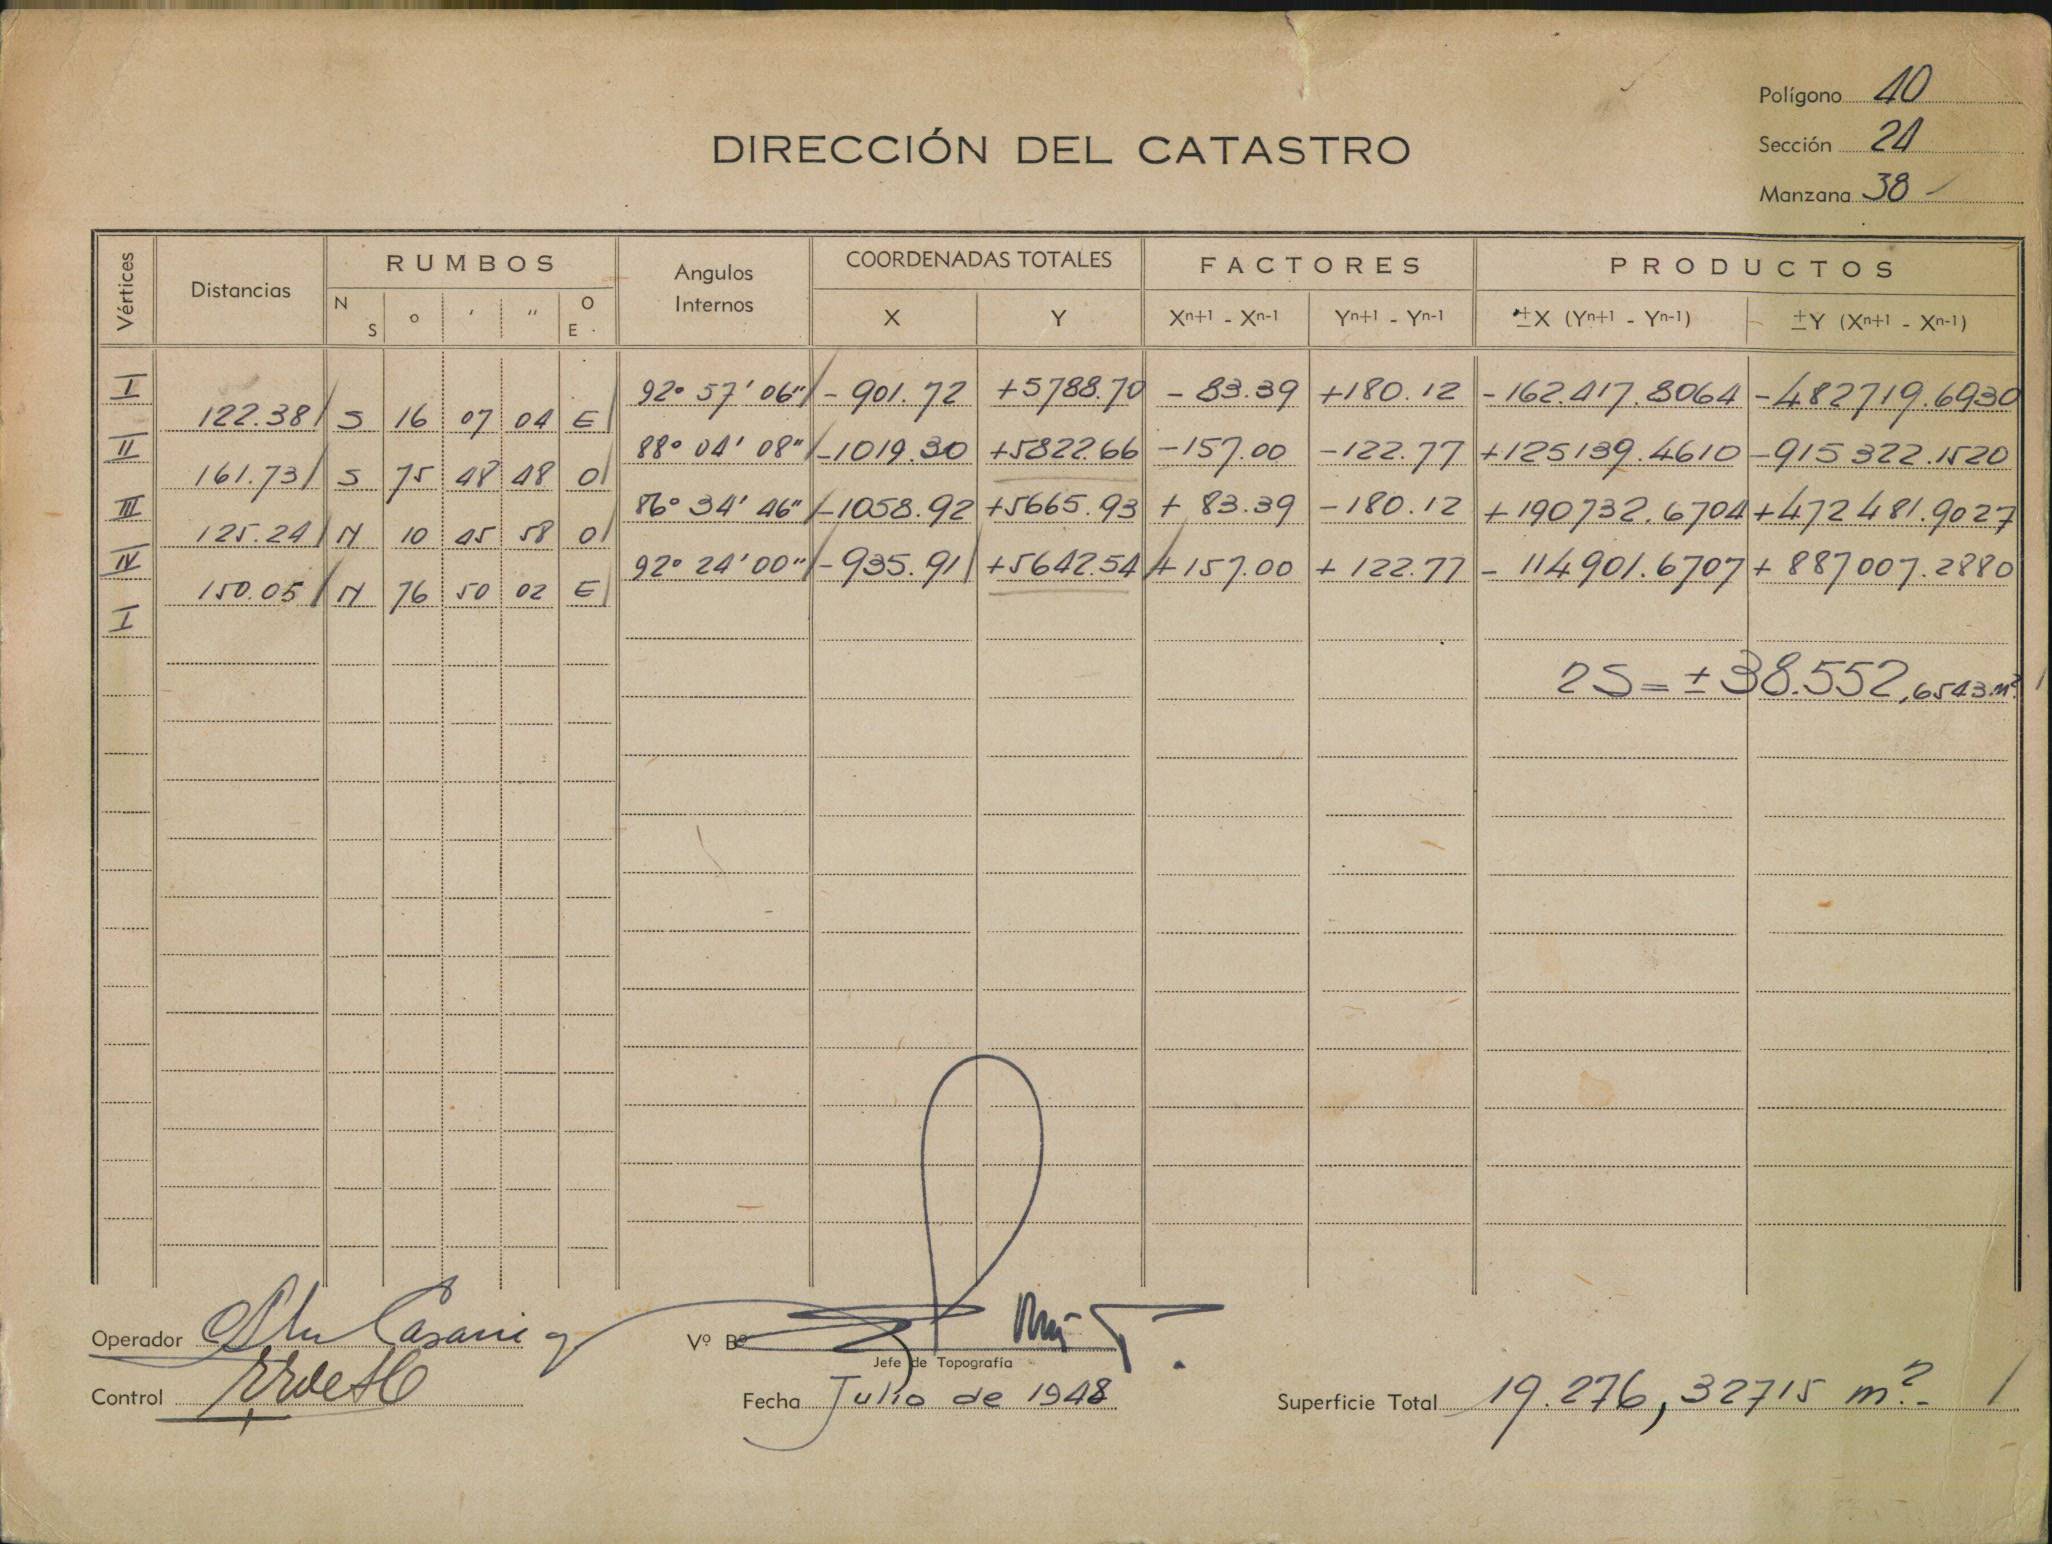 Polígono 40
DIRECCIÓN DEL CATASTRO
Sección 24
Manzana 38
Vértices Distancias RUMBOS Angulos Internos COORDENADAS TOTALES FACTORES PRODUCTOS
N S ° ' " O E X Y Xn+1 - Xn-1 Yn+1 - Yn-1 ±X (Yn+1 - Yn-1) ±Y (Xn+1 - Xn-1)
I 92° 57' 06" - 901.72 +5788.70 - 83.39 +180.12 -162.417.8064 -482719.6930
122.38 S 16 07 04 E
II 88° 04' 08" -1019.30 +5822.66 -157.00 -122.77 +125139.4610 -915322.1520
161.73 S 75 48 48 O
III 86° 34' 46" -1058.92 +5665.93 + 83.39 -180.12 +190732.6704 +472481.9027
125.24 N 10 45 58 O
IV 92° 24' 00" -935.91 +5642.54 +157.00 + 122.77 - 114901.6707 + 887007.2880
150.05 N 76 50 02 E
I
2S = ± 38.552,6543 m²
Operador
Vº Bº
Jefe de Topografía
Control
Fecha Julio de 1948
Superficie Total 19.276,32715 m².-